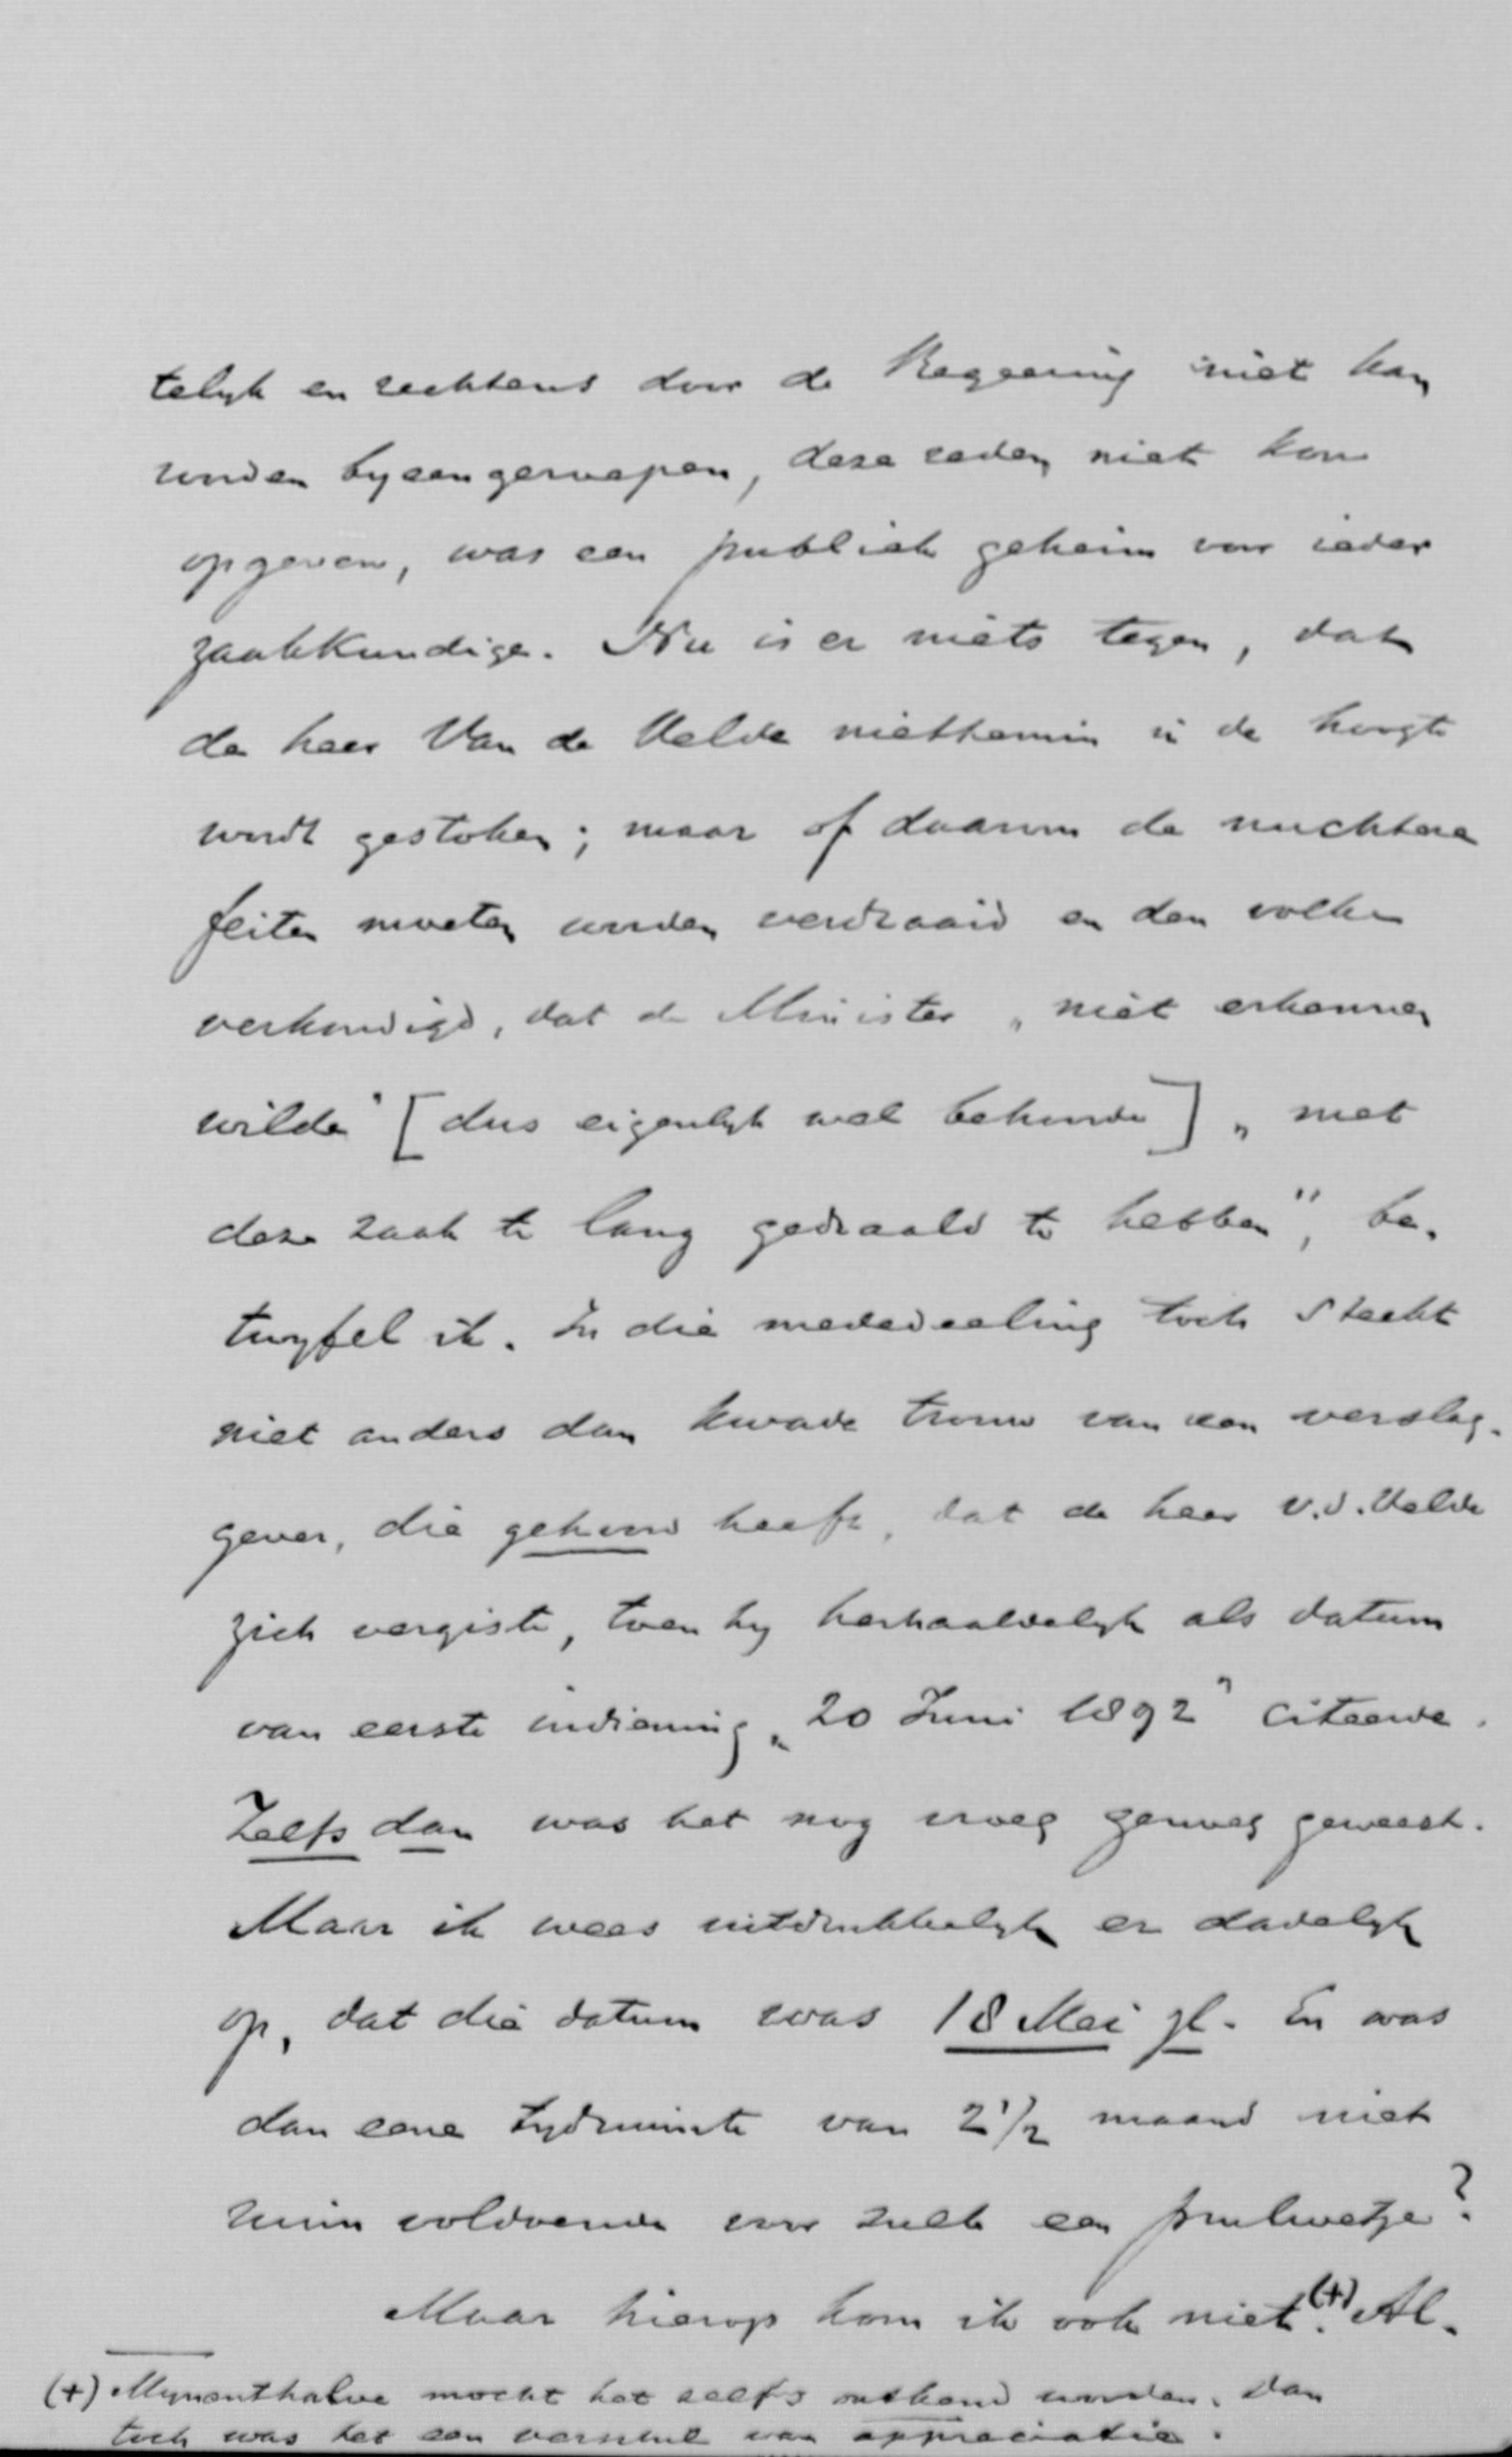 telyk en rechtens door de Regeering niet kan
worden byeengeroepen, deze reden niet kon
opgeven, was een publiek geheim voor ieder
zaakkundige. Nu is er niets tegen, dat
de heer Van de Velde niettemin in de hoogte
wordt gestoken; maar of daarom de nuchtere
feiten moeten worden verdraaid en den volke
verkondigd, dat de Minister „niet erkennen
wilde" [dus eigenlyk wel bekende] „met
deze zaak te lang gedraald te hebben", be-
twyfel ik. In die mededeeling toch steekt
niet anders dan kwade trouw van een verslag-
gever, die gehoord heeft, dat de heer v.d. Velde
zich vergiste, toen hy herhaaldelyk als datum
van eerste indiening „20 Juni 1892" citeerde.
Zelfs dan was het nog vroeg genoeg geweest.
Maar ik wees uitdrukkelyk er dadelyk
op, dat die datum was 18 Mei jl. En was
dan eene tydruimte van 2 1/2 maand niet
ruim voldoende voor zulk een prulwetje?
Maar hierop kom ik ook niet. (+) Al-
(+) Mynenthalve mocht het zelfs ontkend worden, dan
toch was het een verschil van appreciatie.